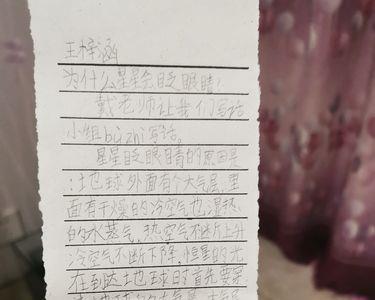 王梓涵
为什么星星会眨眼睛?
戴老师让我们写话
小组bù zhì写话。
星星眨眼睛的原因是
:地球外面有个大气层,里
面有干燥的冷空气也湿热
的水蒸气,热空气不断上升
冷空气不断下降,恒星的光
在到达地球时首先要穿